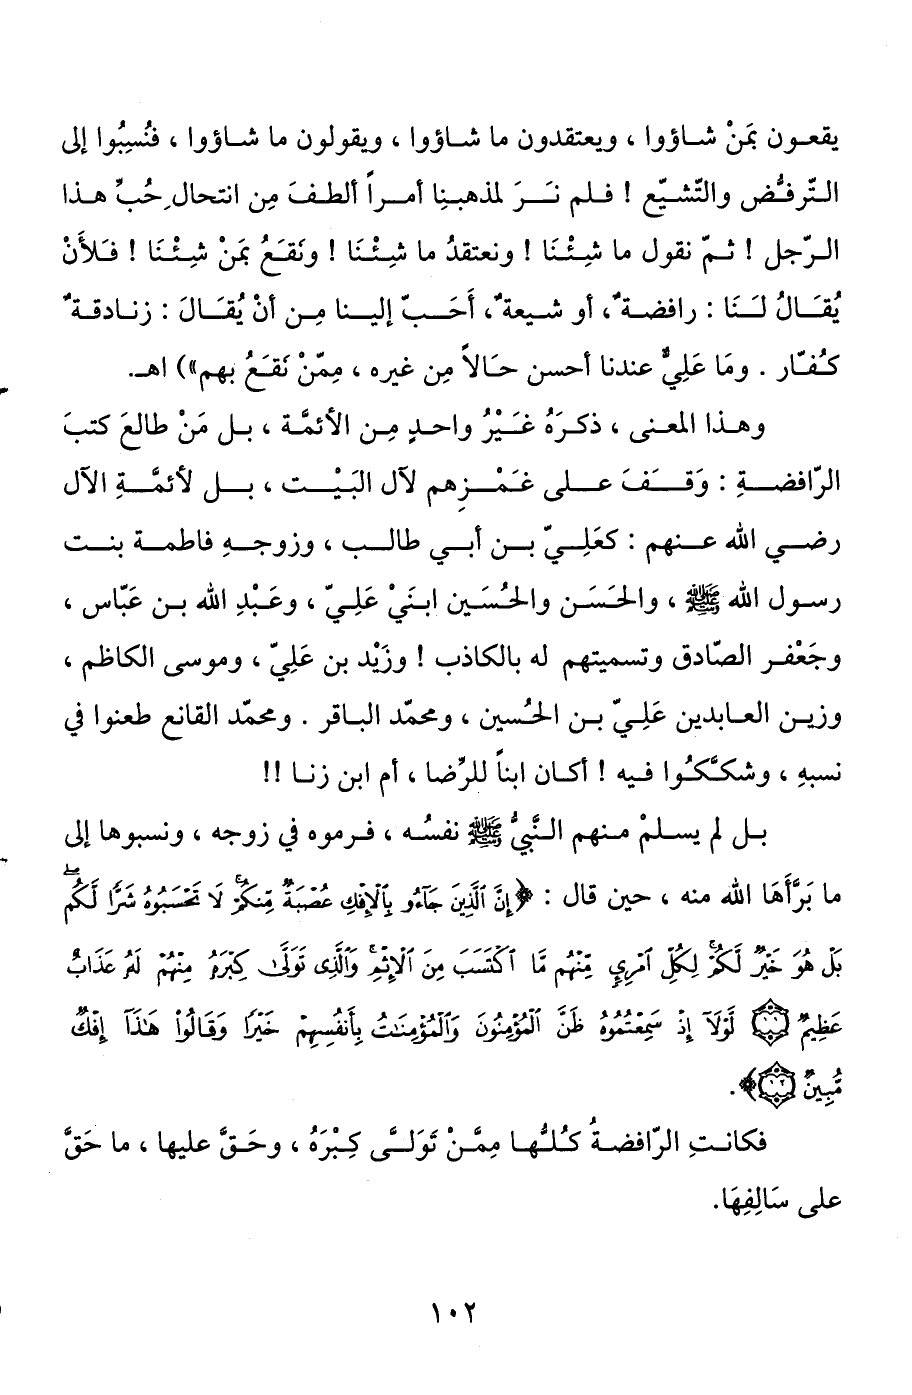 يقعـون بمَنْ شـاؤوا ، ويعتقدون ما شـاؤوا ، ويقولون ما شـاؤوا ، فنُسِبُوا إلى
الـتّرفُّض والتّشيّع ! فـلم نَـرَ لمذهبِنا أمـراً ألطـفَ مِن انتحالِ حُبِّ هـذا
الـرّجل ! ثـمّ نقول ما شِـئْنَا ! ونعتقدُ ما شِـئْنَا ! ونَقَعُ بمَنْ شِـئْنَا ! فَـلَأَنْ
يُقَـالُ لَـنَا : رافضـةٌ ، أو شـيعةٌ ، أَحَـبّ إلينـا مِـن أنْ يُقَـالَ : زنـادقـةٌ
كـُفّار . ومَا عَلِيٌّ عندنا أحسن حَـالاً مِن غيره ، مِمّنْ نَقَعُ بهم») اهـ.
وهـذا المعنى ، ذكـرَهُ غَـيْرُ واحـدٍ مِـن الأئمَّة ، بـل مَنْ طالعَ كتبَ
الرّافضـةِ : وَقَـفَ عـلى غَمْـزِهم لآل البَيْـت ، بـل لأئمَّـةِ الآل
رضـي الله عـنهم : كعَلِـيّ بـن أبـي طالـب ، وزوجـهِ فاطمـة بنـت
رسـول الله ﷺ ، والحَسَـن والحُسَـين ابنَيْ عَلِـيّ ، وعَبْدِ الله بـن عَبّاس ،
وجَعْفـر الصّادق وتسميتهم له بالكاذب ! وزَيْد بن عَلِيّ ، وموسى الكاظم ،
وزيـن العـابدين عَلِـيّ بـن الحُسين ، ومحمّد البـاقر . ومحمّد القانع طعنوا في
نسبهِ ، وشكَّكُـوا فيه ! أكـان ابناً للرِّضا ، أم ابن زنـا !!
بـل لم يسـلمْ منـهم النَّبيُّ ﷺ نفسُـه ، فـرموه في زوجه ، ونسبوها إلى
ما بَرَّأَهَا الله منه ، حين قال : ﴿إِنَّ ٱلَّذِينَ جَآءُو بِٱلْإِفْكِ عُصْبَةٌ مِّنكُمْ ۚ لَا تَحْسَبُوهُ شَرًّا لَّكُم ۖ
بَلْ هُوَ خَيْرٌ لَّكُمْ ۚ لِكُلِّ ٱمْرِئٍ مِّنْهُم مَّا ٱكْتَسَبَ مِنَ ٱلْإِثْمِ ۚ وَٱلَّذِى تَوَلَّىٰ كِبْرَهُۥ مِنْهُمْ لَهُۥ عَذَابٌ
عَظِيمٌ ۝١١ لَّوْلَآ إِذْ سَمِعْتُمُوهُ ظَنَّ ٱلْمُؤْمِنُونَ وَٱلْمُؤْمِنَـٰتُ بِأَنفُسِهِمْ خَيْرًا وَقَالُوا۟ هَـٰذَآ إِفْكٌ
مُّبِينٌ ۝١٢﴾.
فكانـتِ الرّافضـةُ كـُلُّهـا مِمَّنْ تَوَلَّـى كِبْرَهُ ، وحَـقَّ عليها ، ما حَقَّ
على سَالِفِهَا.
١٠٢